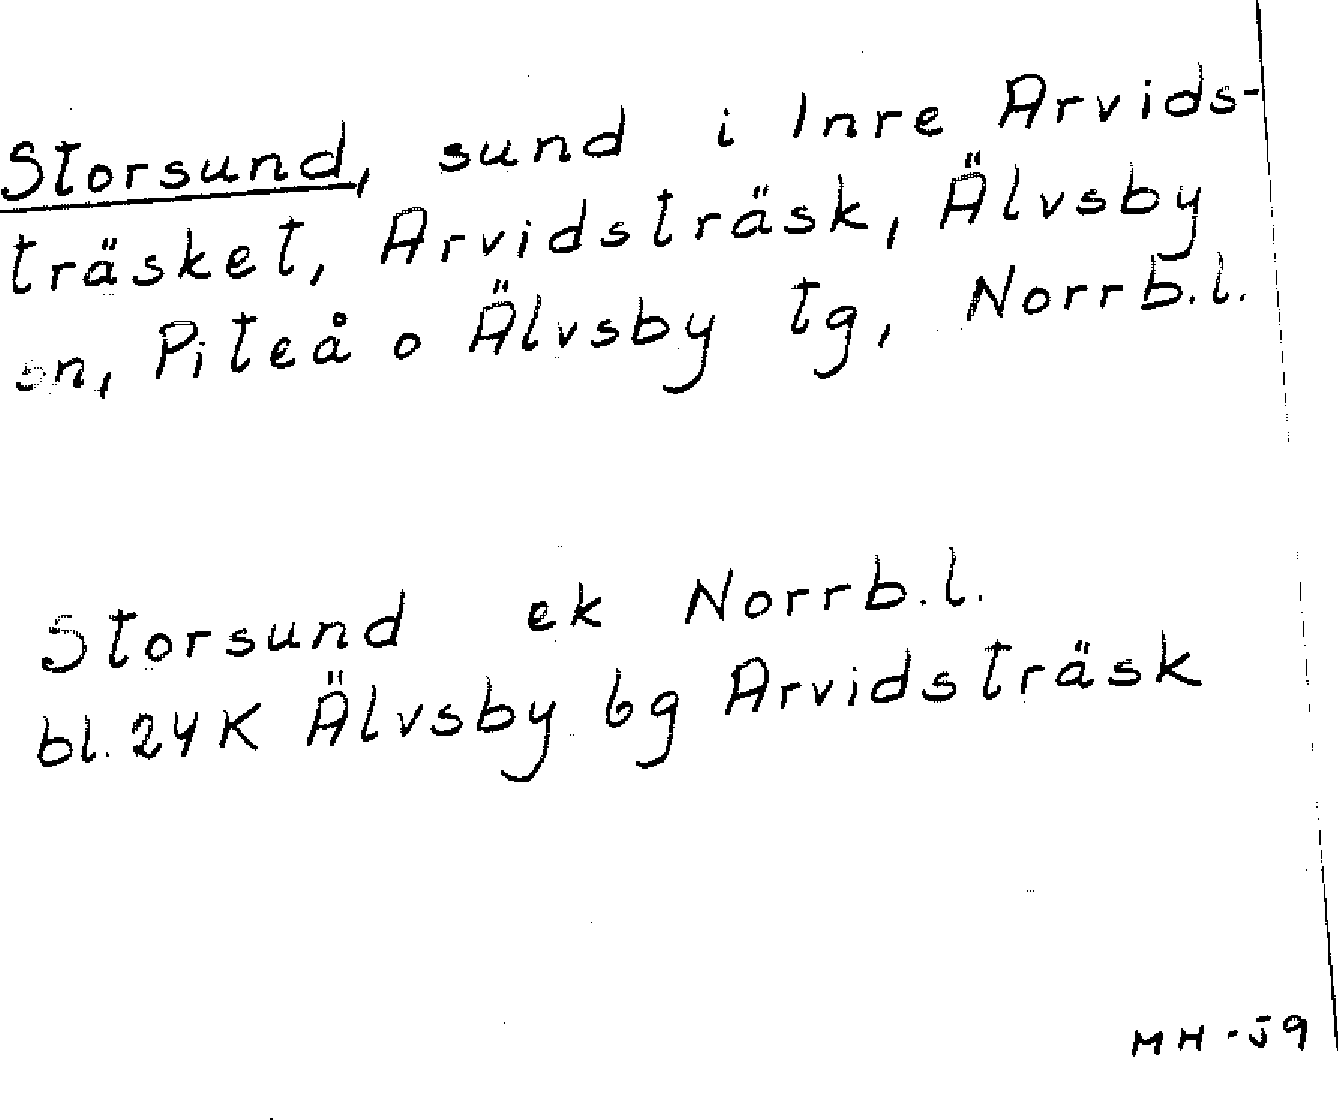 Storsund, sund i Inre Arvids-
träsket, Arvidsträsk, Älvsby
sn, Piteå o Älvsby tg, Norrb.l.
Storsund ek Norrb.l.
bl.24K Älvsby bg Arvidsträsk
MH-59